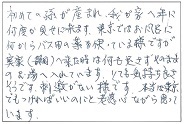 初めての孫が産まれ、我が家へ年に
何度か見せに来ます。東京ではお風呂に
何かしらバス用の薬を使っている様ですが
実家(静岡)に来た時は何も足さずそのまま
のお湯へ入れています。とても気持ち良さ
そうです。刺激がない様です。本当は東京
でもつければいいのにと思いながら帰って
います。